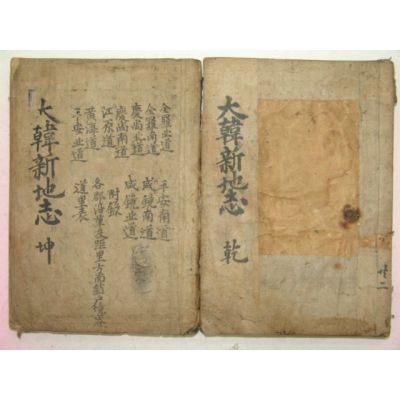 大韓新地志 乾
共二
大韓新地志 坤
全羅北道
全羅南道
慶尚北道
慶尚南道
江原道
黃海道
平安北道
平安南道
咸鏡南道
咸鏡北道
附錄
各郡沿革及距里方面結戶
道里表